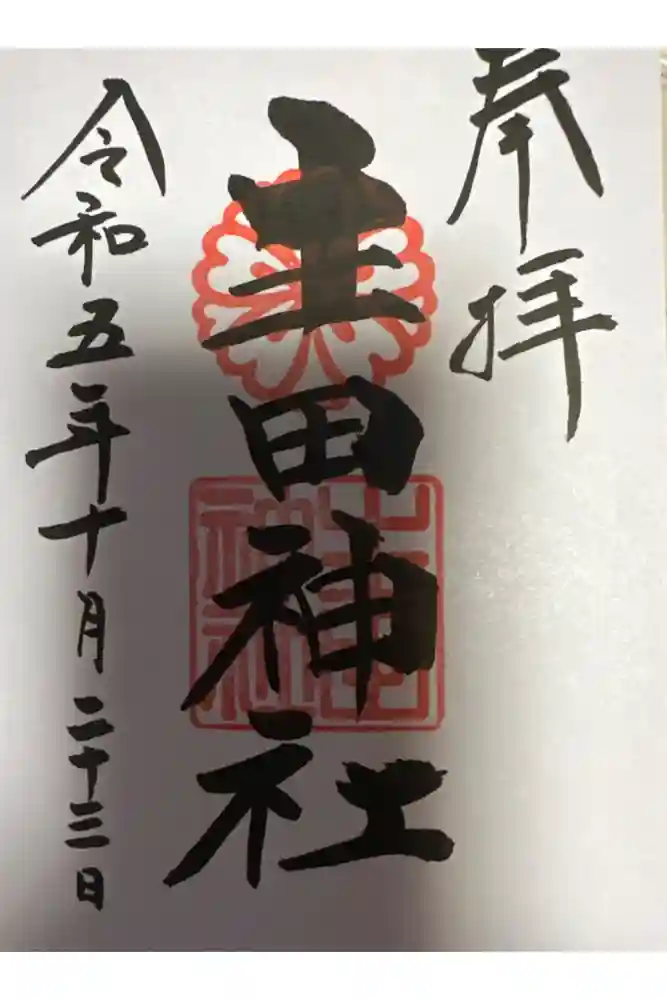 奉拝
生田神社
令和五年十月二十三日